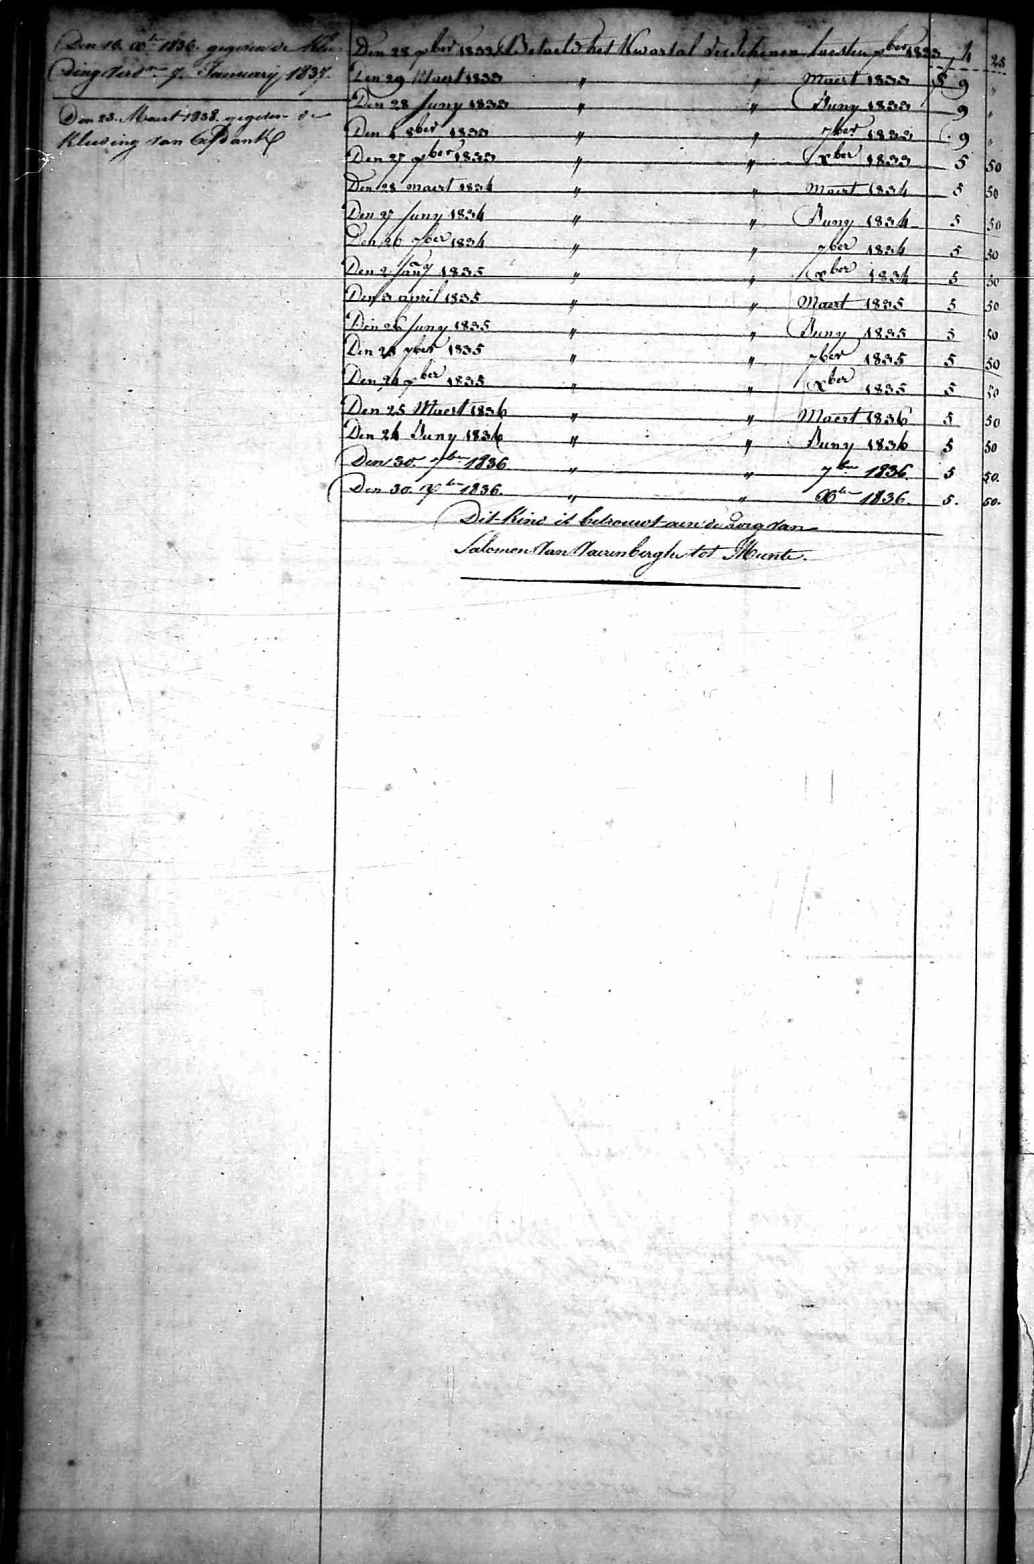 Den 16. Xbre 1836. gegeven de Klee-
ding verd. 7. January 1837.
Den 23. Maart 1838. gegeven de
kleeding van
Den 28 9ber 1832 Betaelt het Kwartal verschenen laesten 9ber 1832 4 25
Den 29 Maert 1833 " " Maert 1833 9 "
Den 28 Juny 1833 " " Juny 1833 9 "
Den 1 8ber 1833 " " 7ber 1833 9 "
Den 27 9ber 1833 " " Xber 1833 5 50
Den 28 maert 1834 " " Maert 1834 5 50
Den 27 Juny 1834 " " Juny 1834 5 50
Den 26 7ber 1834 " " 7ber 1834 5 50
Den 2 Jany 1835 " " Xber 1834 5 50
Den 3 april 1835 " " Maert 1835 5 50
Den 26 Juny 1835 " " Juny 1835 5 50
Den 7ber 1835 " " 7ber 1835 5 50
Den 24 9ber 1835 " " Xber 1835 5 50
Den 25 Maert 1836 " " Maert 1836 5 50
Den 24 Juny 1836 " " Juny 1836 5 50
Den 30. 7bre 1836 " " 7bre 1836. 5 50.
Den 30. Xbre 1836. " " Xbre 1836. 5. 50.
Dit Kind is betrouwt aen de zorg van
Salomon Van Vaerenbergh tot Munte.